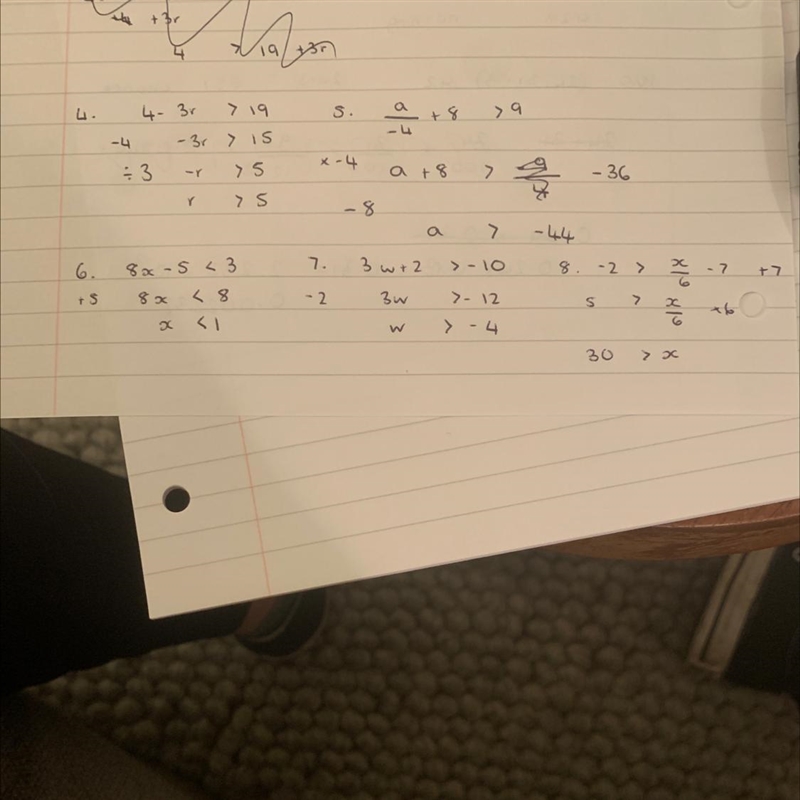 +3r
4 > 19 +3r
4. 4 - 3r > 19
-4 -3r > 15
÷3 -r > 5
r > 5
5. a/-4 + 8 > 9
x-4 a + 8 > -36
-8
a > -44
6. 8x - 5 < 3
+5 8x < 8
x < 1
7. 3w + 2 > -10
-2 3w > -12
w > -4
8. -2 > x/6 - 7 +7
5 > x/6 ×6
30 > x